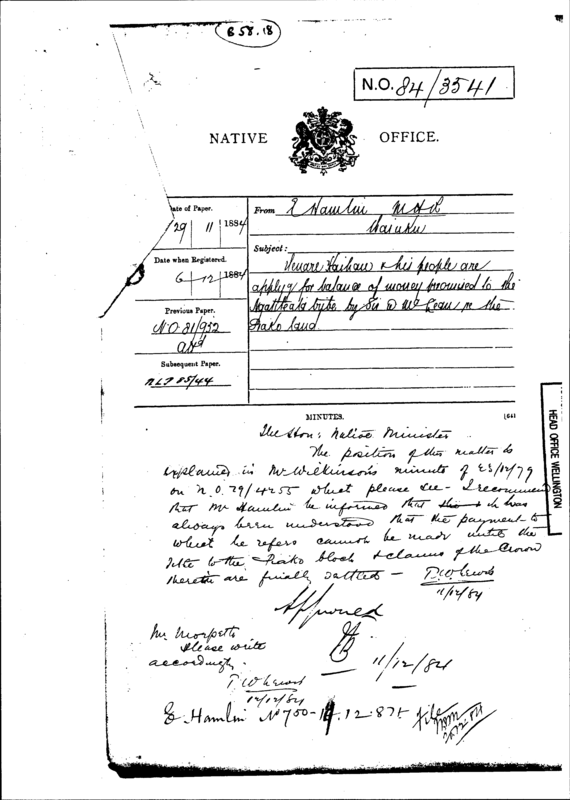 B 58.18
N.O. 84/3541
NATIVE OFFICE.
ate of Paper.
29 11 1884
Date when Registered.
6-12-1884
Previous Paper.
N.O. 81/952
Subsequent Paper.
N L P 85/44
From E Hamlin M.H.R.
Waiuku
Subject:
Henare Kaihau & his people are
applyg for balance of money promised to the
tribe by Sir D McLean, in the
Piako land
MINUTES.
The Hon: Native Minister
The position of this matter is
explained in Mr Wilkinson's minute of 23/12/79
on N.O. 79/4255 which please see - I recommend
that Mr Hamlin be informed that it has
always been understood that the payment to
which he refers cannot be made until the
title to the Piako block & claims of the Crown
therein are finally settled -
T.W. Lewis
11/12/84
Approved
JB
11/12/84
Mr Morpeth
Please write
accordingly.
T W Lewis
12/12/84
E. Hamlin No 750-
File
HEAD OFFICE WELLINGTON